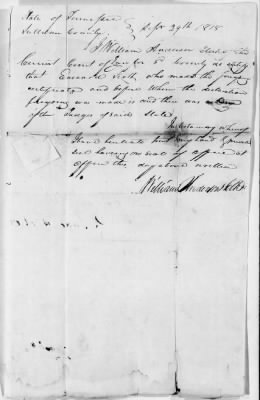 State of Tennessee
Sullivan County } Sepr 29th 1818
I William Anderson Clerk of the
Circuit Court of for Sd County do certify
that who made the foregoing
certificate and before whom the declaration
foregoing was made is and then was
of the Judges of said State
In testimony whereof
I have hereunto put my hand & private
seal having no seal of office at
office this day above written
William Anderson Clk